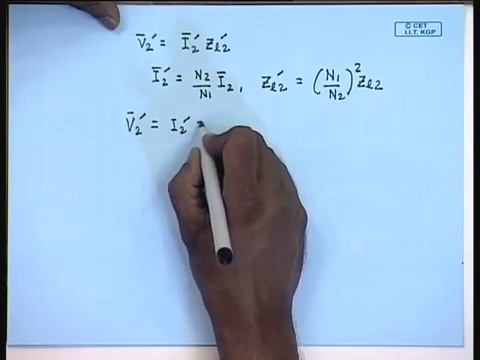 © CET
I.I.T. KGP
V̄₂′ = Ī₂′ Z_{l2}′
Ī₂′ = N₂/N₁ Ī₂, Z_{l2}′ = (N₁/N₂)² Z_{l2}
V̄₂′ = I₂′